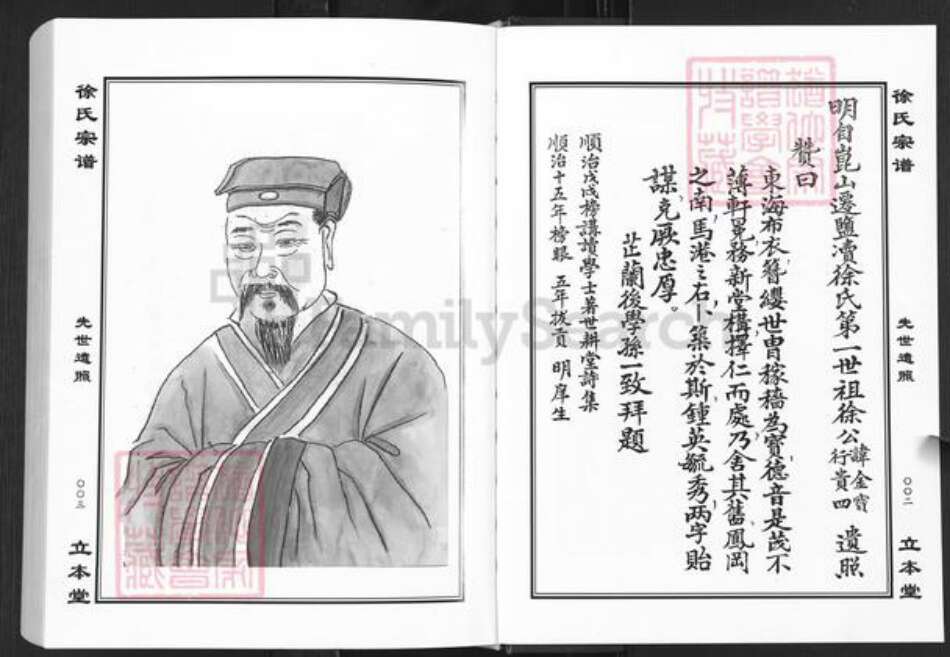 徐氏宗谱
先世遺照
〇〇二
立本堂
明自崑山遷鹽瀆徐氏第一世祖徐公諱金寶行貴四遺照
贊曰
東海布衣簪纓世胄稼穡為寶德音是茂不
薄軒冕務新堂構擇仁而處乃舍其舊鳳岡
之南馬港之右卜築於斯鍾英毓秀两字貽
謀克厥忠厚。
芷蘭後學孫一致拜題
順治戊戌榜講讀學士著世耕堂詩集
順治十五年榜眼 五年拔貢 明庠生
徐氏宗谱
先世遺照
〇〇三
立本堂
FamilySearch